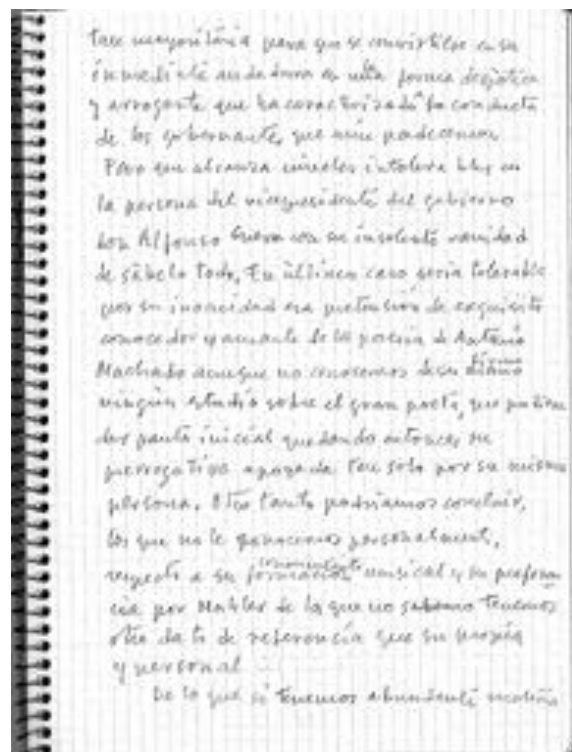 tan mayoritaria para que se convirtiese en su
inmediata andadura en una forma despótica
y arrogante que ha caracterizado la conducta
de los gobernantes que aún padecemos.
Pero que alcanza niveles intolerables en
la persona del vicepresidente del gobierno
don Alfonso Guerra con su insolente vanidad
de sábelo todo. En último caso sería tolerable
por su inocuidad esa pretensión de exquisito
conocedor y amante de la poesía de Antonio
Machado aunque no conocemos de su
ningún estudio sobre el gran poeta, que pudiera
dar pauta inicial quedando entonces su
prerrogativa apoyada tan solo por su misma
persona. Otro tanto podríamos concluir,
los que no le conocemos personalmente,
respecto a su formación conocimiento musical y su preferen
cia por Mahler de la que no tenemos
otro dato de referencia que su propia
y personal
De lo que sí tenemos abundante